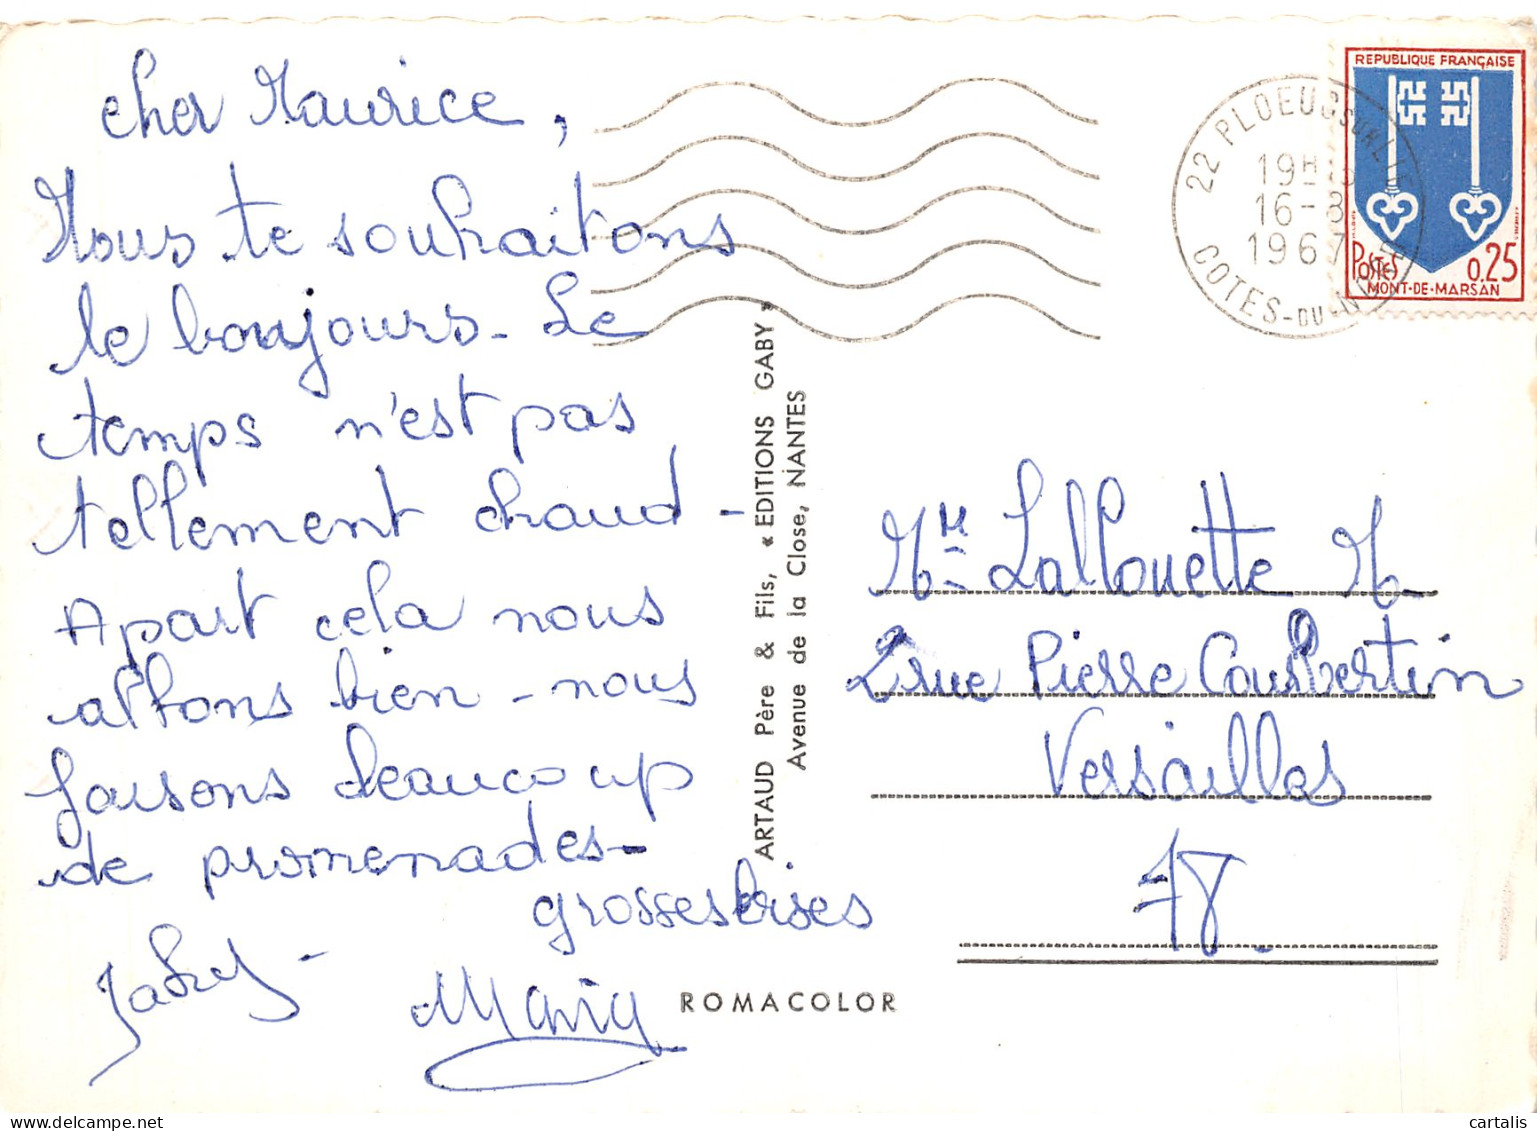 cher Maurice,
Nous te souhaitons
le bonjours - Le
temps n'est pas
tellement chaud -
Apart cela nous
allons bien - nous
faisons beaucoup
de promenades -
grosses bises
ARTAUD Père & Fils, « EDITIONS GABY »
Avenue de la Close, NANTES
ROMACOLOR
22 PLOEUC SUR LIE
19H15
16-8
1967
COTES-DU-NORD
REPUBLIQUE FRANÇAISE
POSTES 0,25
MONT-DE-MARSAN
Mr Lallouette M
2 rue Pierre Coubertin
Versailles
78.
cartalis